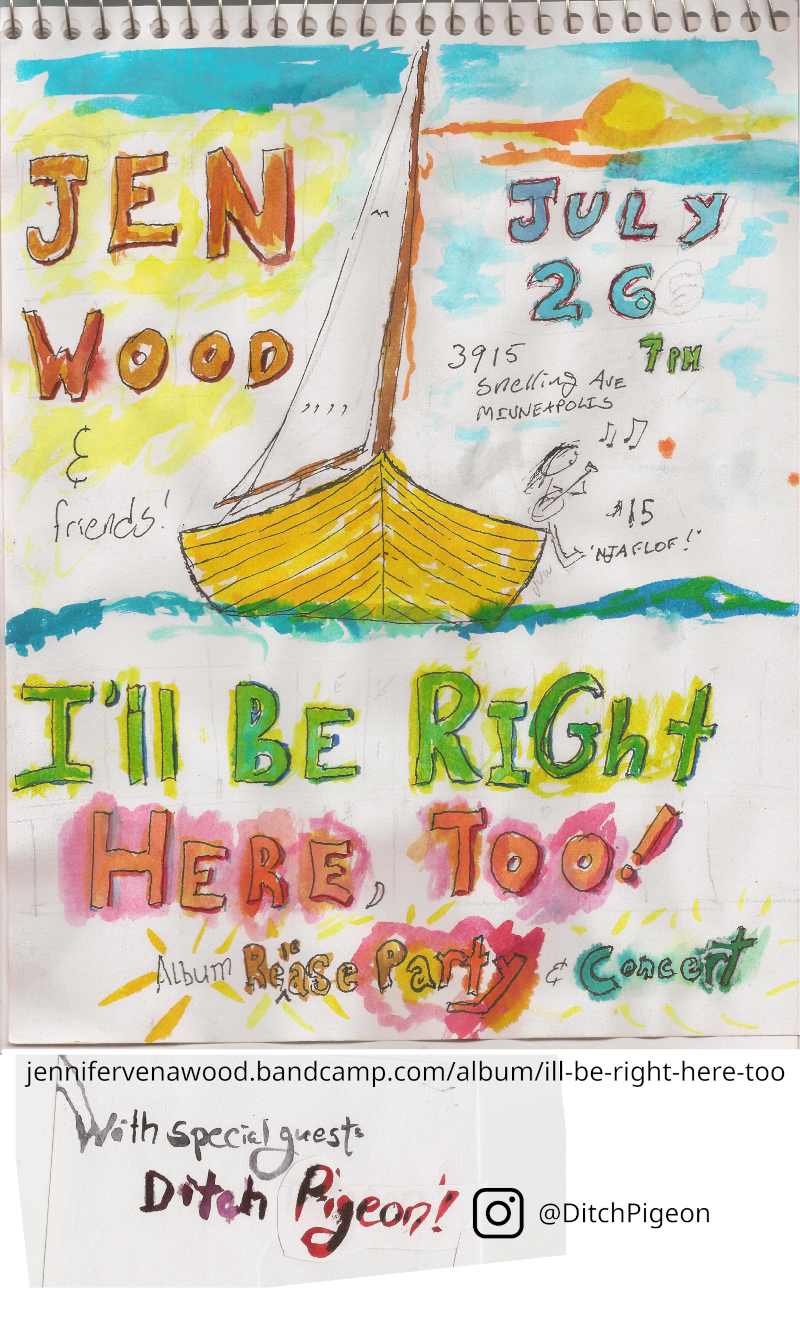 JEN
WOOD
&
friends!
JULY
26
7PM
3915
Snelling AVE
MINNEAPOLIS
$15
"NTAFLOF!"
I'll BE RIGht
HERE, TOO!
Album Rease Party & Concert
le
jennifervenawood.bandcamp.com/album/ill-be-right-here-too
With special guests
Ditch Pigeon!
@DitchPigeon